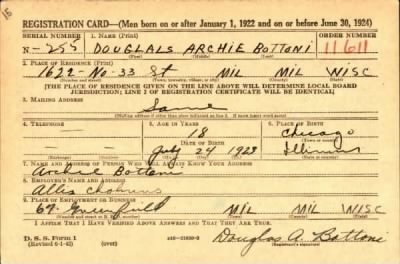 REGISTRATION CARD—(Men born on or after January 1, 1922 and on or before June 30, 1924)
SERIAL NUMBER 1. NAME (Print) ORDER NUMBER
N-255 DOUGLALS ARCHIE BOTTONI 11611
2. PLACE OF RESIDENCE (Print)
1622 - No-33 St MIL MIL WISC
(Number and street) (Town, township, village, or city) (County) (State)
[THE PLACE OF RESIDENCE GIVEN ON THE LINE ABOVE WILL DETERMINE LOCAL BOARD
JURISDICTION; LINE 2 OF REGISTRATION CERTIFICATE WILL BE IDENTICAL]
3. MAILING ADDRESS
Same
[Mailing address if other than place indicated on line 2. If same insert word same]
4. TELEPHONE 5. AGE IN YEARS 6. PLACE OF BIRTH
18 Chicago
DATE OF BIRTH
July 29 1923 Illinois
(Mo.) (Day) (Yr.)
7. NAME AND ADDRESS OF PERSON WHO WILL ALWAYS KNOW YOUR ADDRESS
Archie Bottoni
8. EMPLOYER'S NAME AND ADDRESS
Allis Chalmers
9. PLACE OF EMPLOYMENT OR BUSINESS
67. Greenfield MIL MIL WISC
(Number and street or R. F. D. number) (Town) (County) (State)
I AFFIRM THAT I HAVE VERIFIED ABOVE ANSWERS AND THAT THEY ARE TRUE.
D. S. S. Form 1
(Revised 6-1-42) (over) Douglas A. Bottoni
(Registrant's signature)